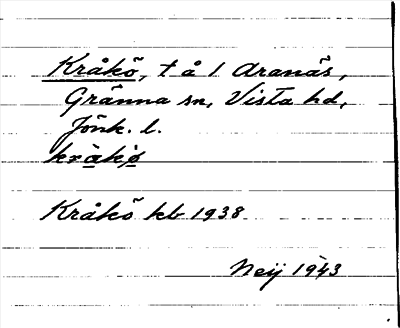 Kråkö, t å 1 Aranäs,
Gränna sn, Vista hd,
Jönk. l.
kràkø
Kråkö kb 1938
Neij 1943